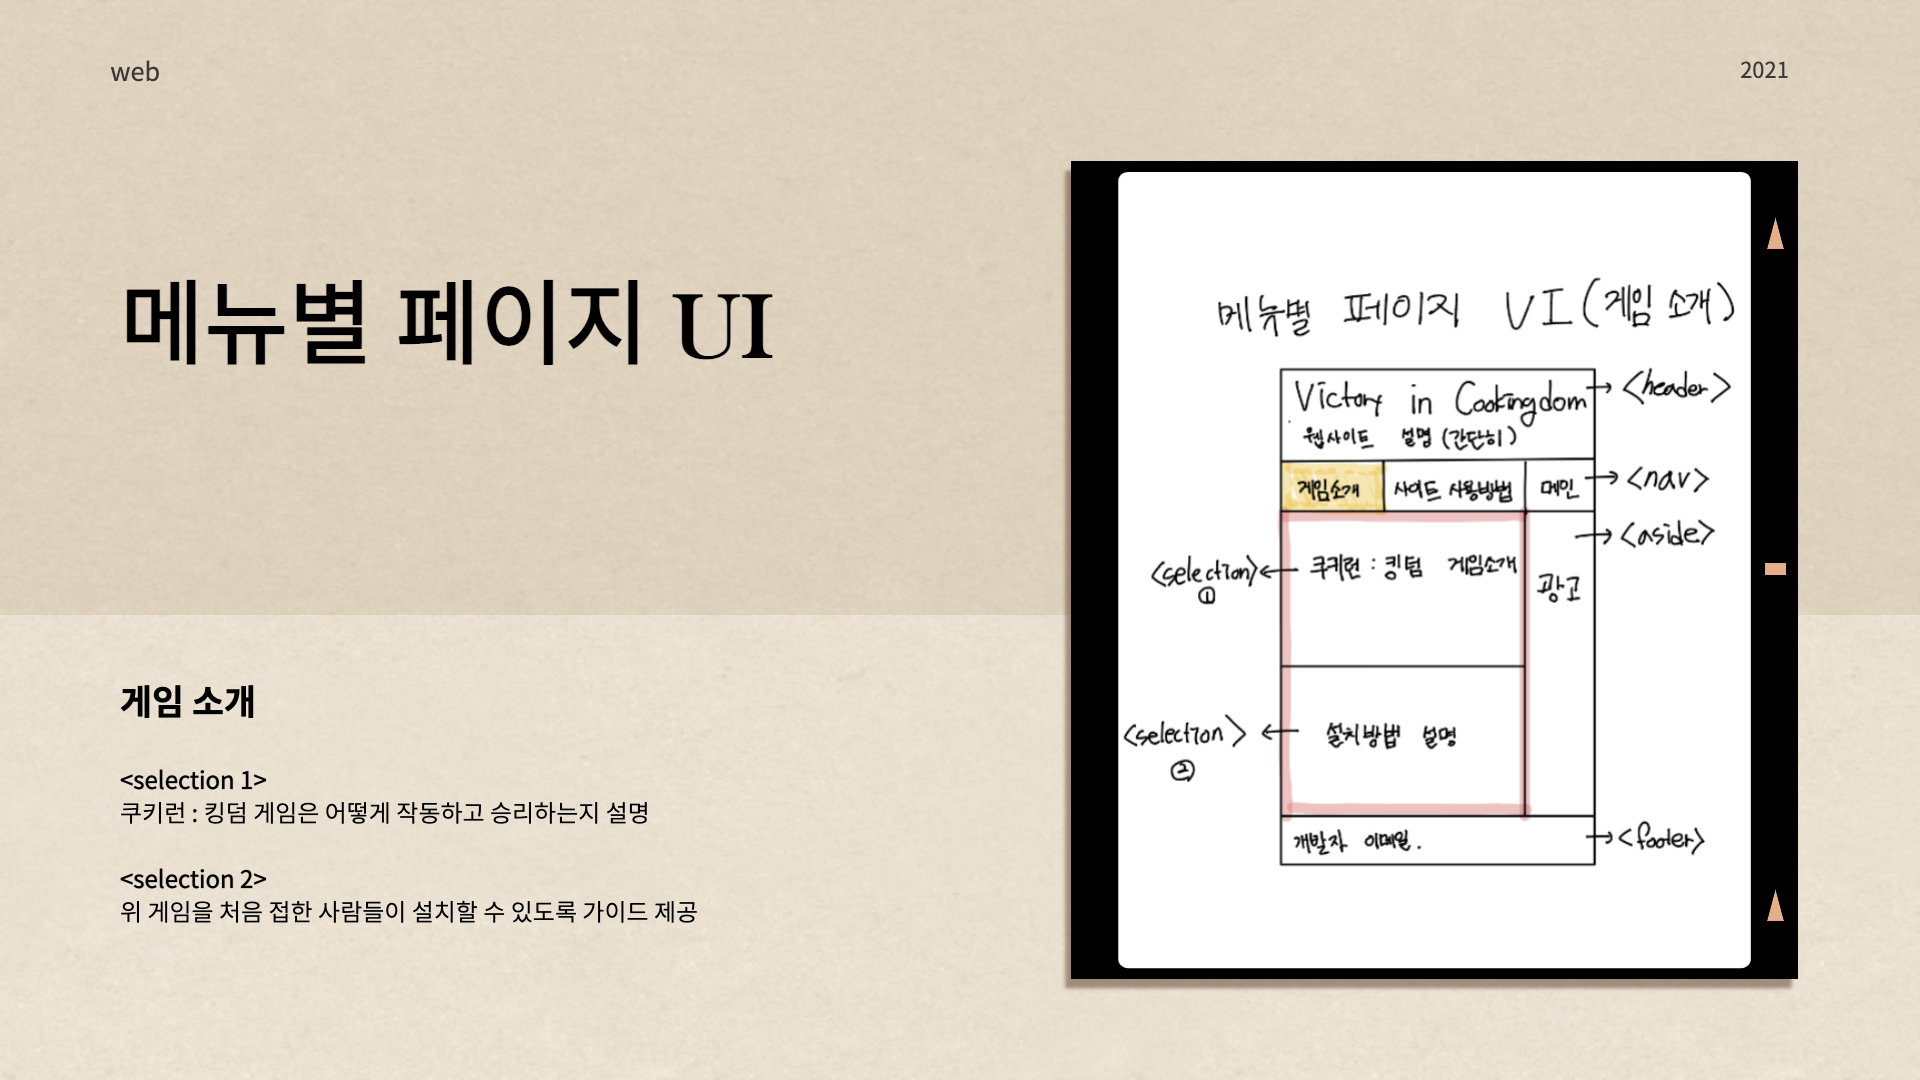 web
2021
메뉴별 페이지 UI
게임 소개
<selection 1>
쿠키런 : 킹덤 게임은 어떻게 작동하고 승리하는지 설명
<selection 2>
위 게임을 처음 접한 사람들이 설치할 수 있도록 가이드 제공
메뉴별 페이지 UI (게임 소개)
Victory in Cookingdom
<header>
웹사이트 설명 (간단히)
게임소개
사이트 사용방법
메인
<nav>
<aside>
<selection>
①
쿠키런 : 킹덤 게임소개
광고
<selection>
②
설치방법 설명
개발자 이메일.
<footer>